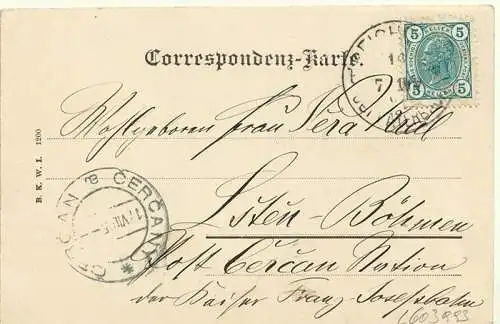 Correspondenz-Karte.
5 5
5 5
B. K. W. I. 1200
Wohlgeboren Frau Vera
Lštěn - Böhmen
Post Čerčan Station
der Kaiser Franz-Josefsbahn
ČERČAN B ČERČANY
17 VII 5
603993